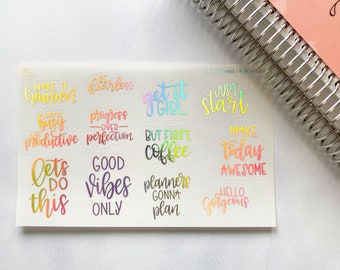 MAKE IT
happen
be
fearless
get it
GIRL
JUST
start
busy
productive
progress
OVER PERFECTION
BUT FIRST
coffee
MAKE
today
AWESOME
let's
DO
this
GOOD
vibes
ONLY
planners
GONNA
plan
HELLO
Gorgeous